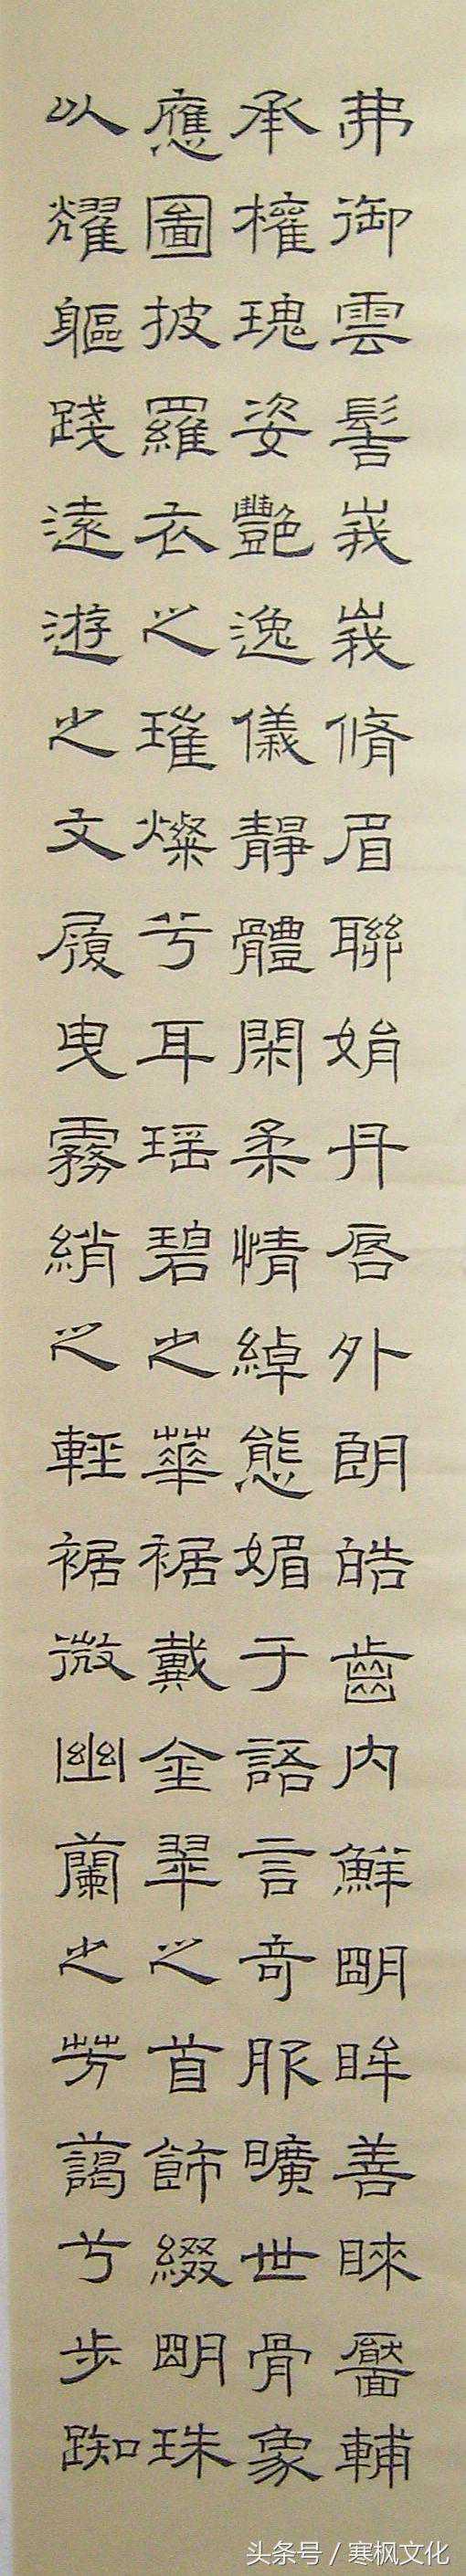 弗御雲髻峩峩脩眉聯娟丹唇外朗皓齒内鮮明眸善睞靨輔
承權瑰姿艷逸儀靜體閑柔情綽態媚于語言奇服曠世骨象
應圖披羅衣之璀燦兮耳瑶碧之華裾戴金翠之首飾綴明珠
以耀軀踐遠遊之文履曳霧綃之輕裾微幽蘭之芳藹兮步踟
头条号 / 寒枫文化